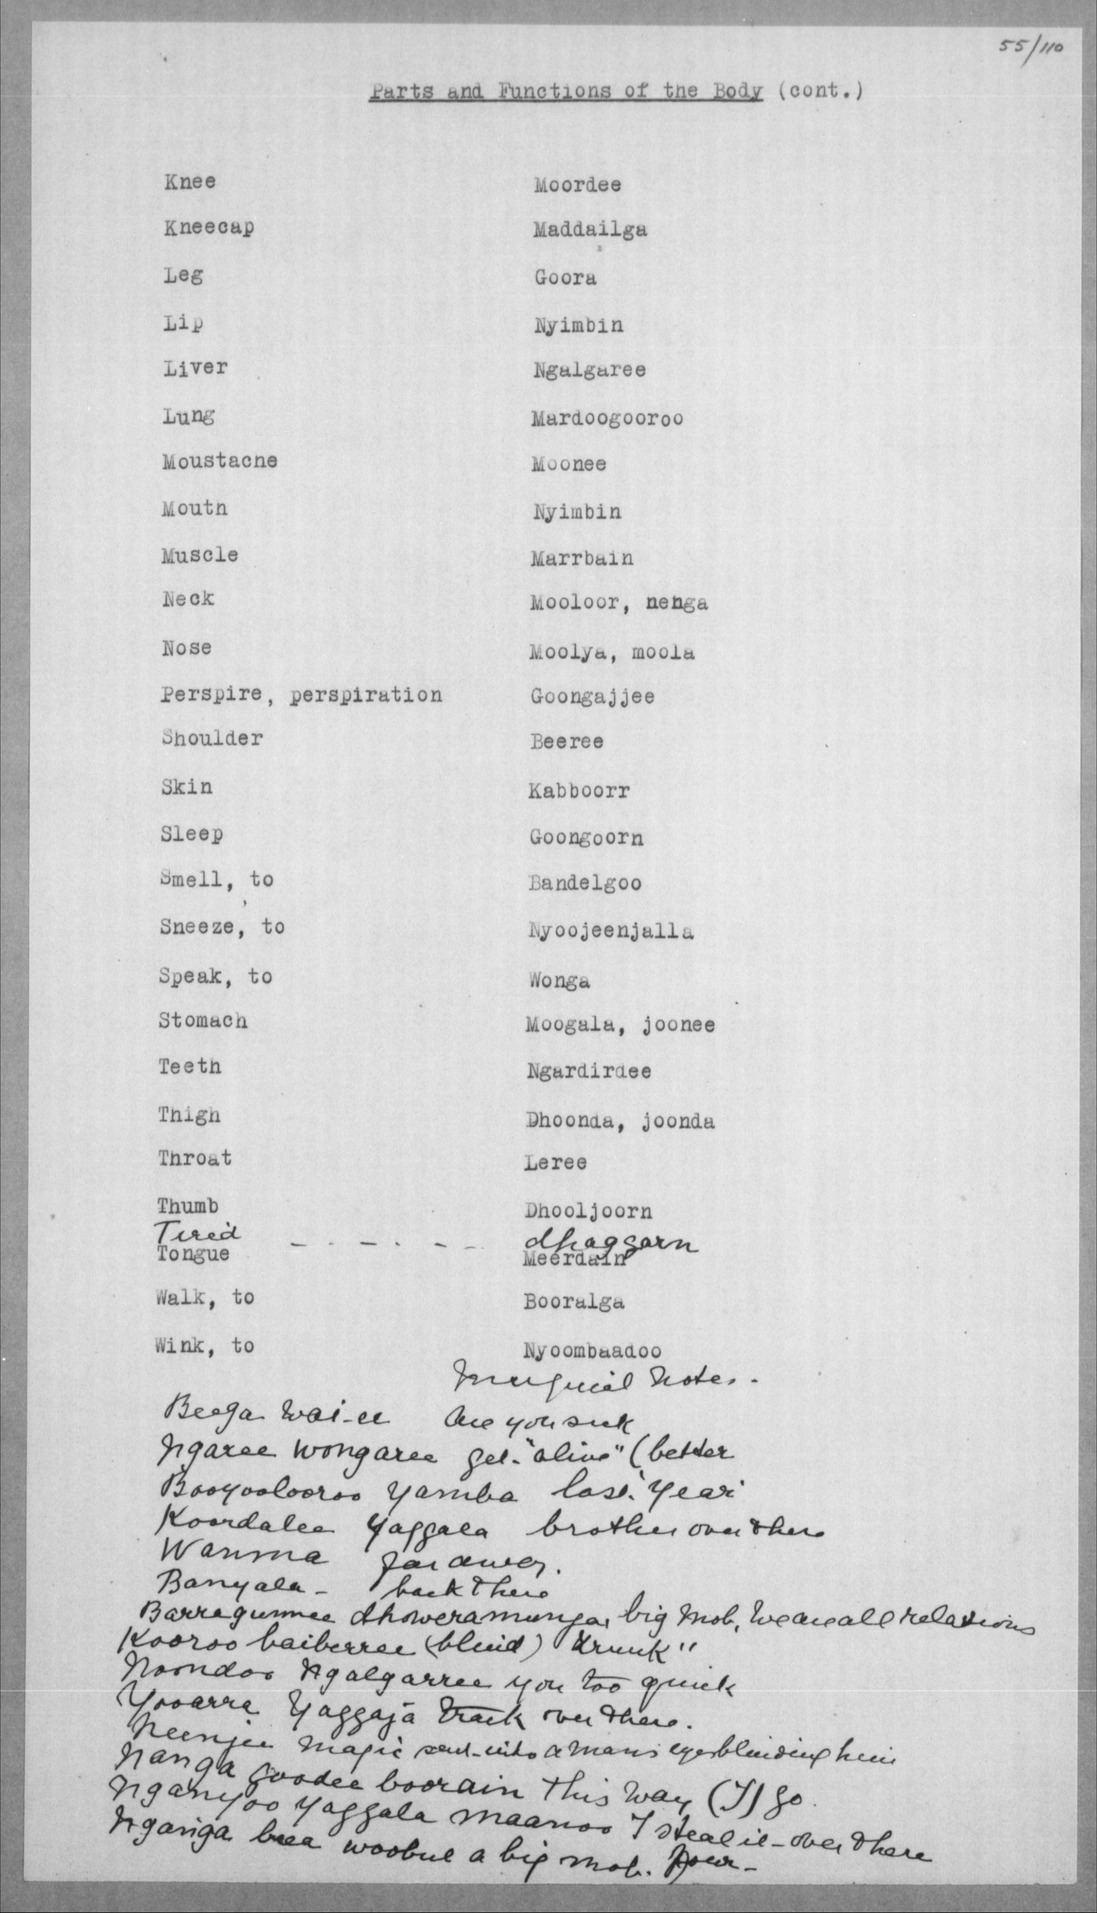 55/110
Parts and Functions of the Body (cont.)
Knee Moordee
Kneecap Maddailga
Leg Goora
Lip Nyimbin
Liver Ngalgaree
Lung Mardoogooroo
Moustache Moonee
Mouth Nyimbin
Muscle Marrbain
Neck Mooloor, nenga
Nose Moolya, moola
Perspire, perspiration Goongajjee
Shoulder Beeree
Skin Kabboorr
Sleep Goongoorn
Smell, to Bandelgoo
Sneeze, to Nyoojeenjalla
Speak, to Wonga
Stomach Moogala, joonee
Teeth Ngardirdee
Thigh Dhoonda, joonda
Throat Leree
Thumb Dhooljoorn
Tired - . - . - - dhaggarn
Tongue Meerdain
Walk, to Booralga
Wink, to Nyoombaadoo
Marginal Notes.
Beega wai-ee Are you sick
Ngaree wongaree get "alive" (better
Booyoolooroo yamba last year
Koordalee yaggala brother over there
Wanma far away.
Banyala - back there
Barragunmee dhoweramunga, big mob, we are all relations
Kooroo baiberree (blind) "drunk"
Noondoo ngalgarree you too quick
Yooarra yaggaja track over there.
Neenjee magic sent into a man's eyes blinding him
Nanga goodee boorain this way (I) go.
Nganyoo yaggala maanoo I steal it - over there
Nganga bea woobul a big mob.